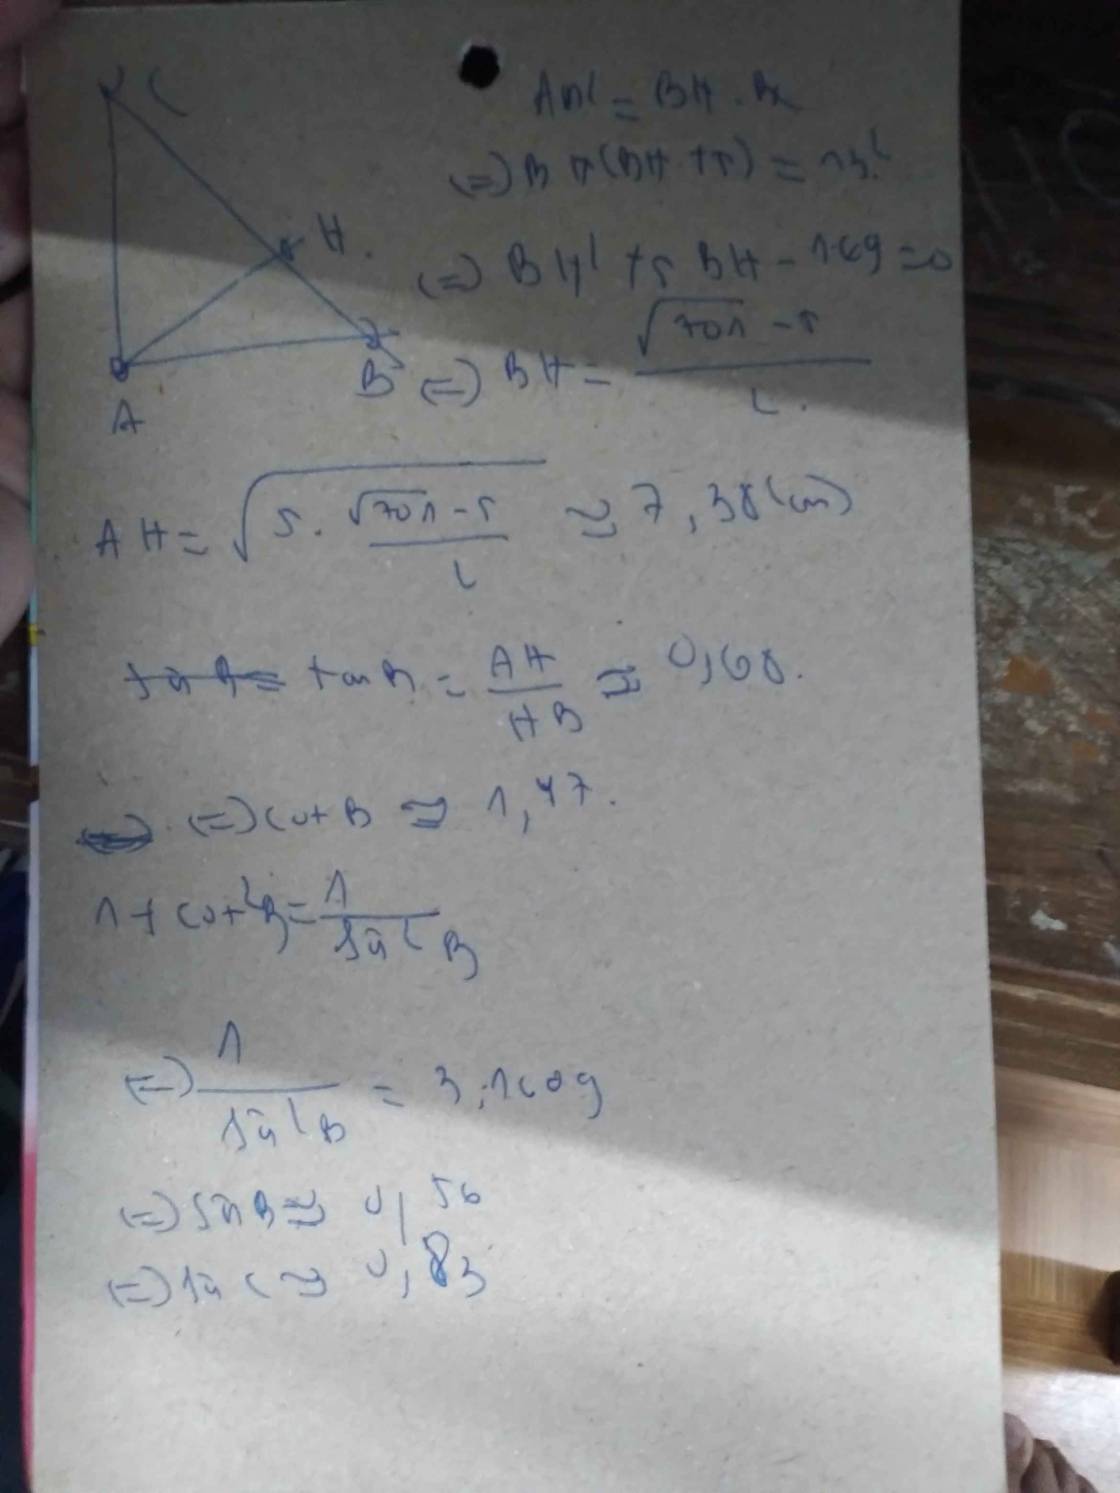 C
H
A
B
AB² = BH . BC
⇔ BH(BH + 5) = 13²
⇔ BH² + 5 BH - 169 = 0
⇔ BH = \frac{\sqrt{701} - 5}{2}.
AH = \sqrt{5 . \frac{\sqrt{701} - 5}{2}} ≃ 7,38 (cm)
tan B = \frac{AH}{HB} ≃ 0,68.
⇔ cot B ≃ 1,47.
1 + cot² B = \frac{1}{sin² B}
⇔ \frac{1}{sin² B} = 3,1609
⇔ sin B ≃ 0,56
⇔ sin C ≃ 0,83